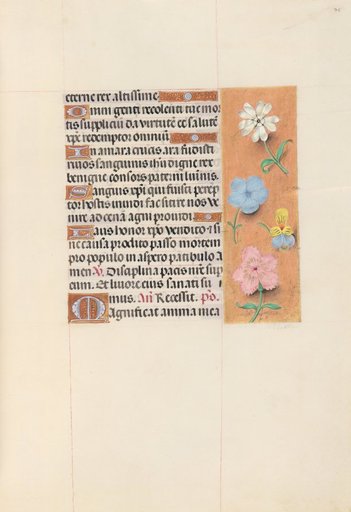 eterne rex altissime
Omni genti recolenti tue mor
tis supplicii da virtutē ce salutē
xp̄e redemptor omniū
In amara crucis ara fudisti
ruos sanguinis ihū digne rex
benigne consors paterni luminis.
Sanguis xp̄i qui fuisti perēp
tor hostis imūdi fac sitire nos ve
nire ad cenā agni prouidi
Laus honor xp̄o vendito ⁊ si
ne causa prodito passo mortem
pro populo in aspero patibulo A
men v̄. Disciplina pacis nr̄e sup
eum. Et liuore eius sanati su
mus. An̄ Recessit. ps̄.
Magnificat anima mea